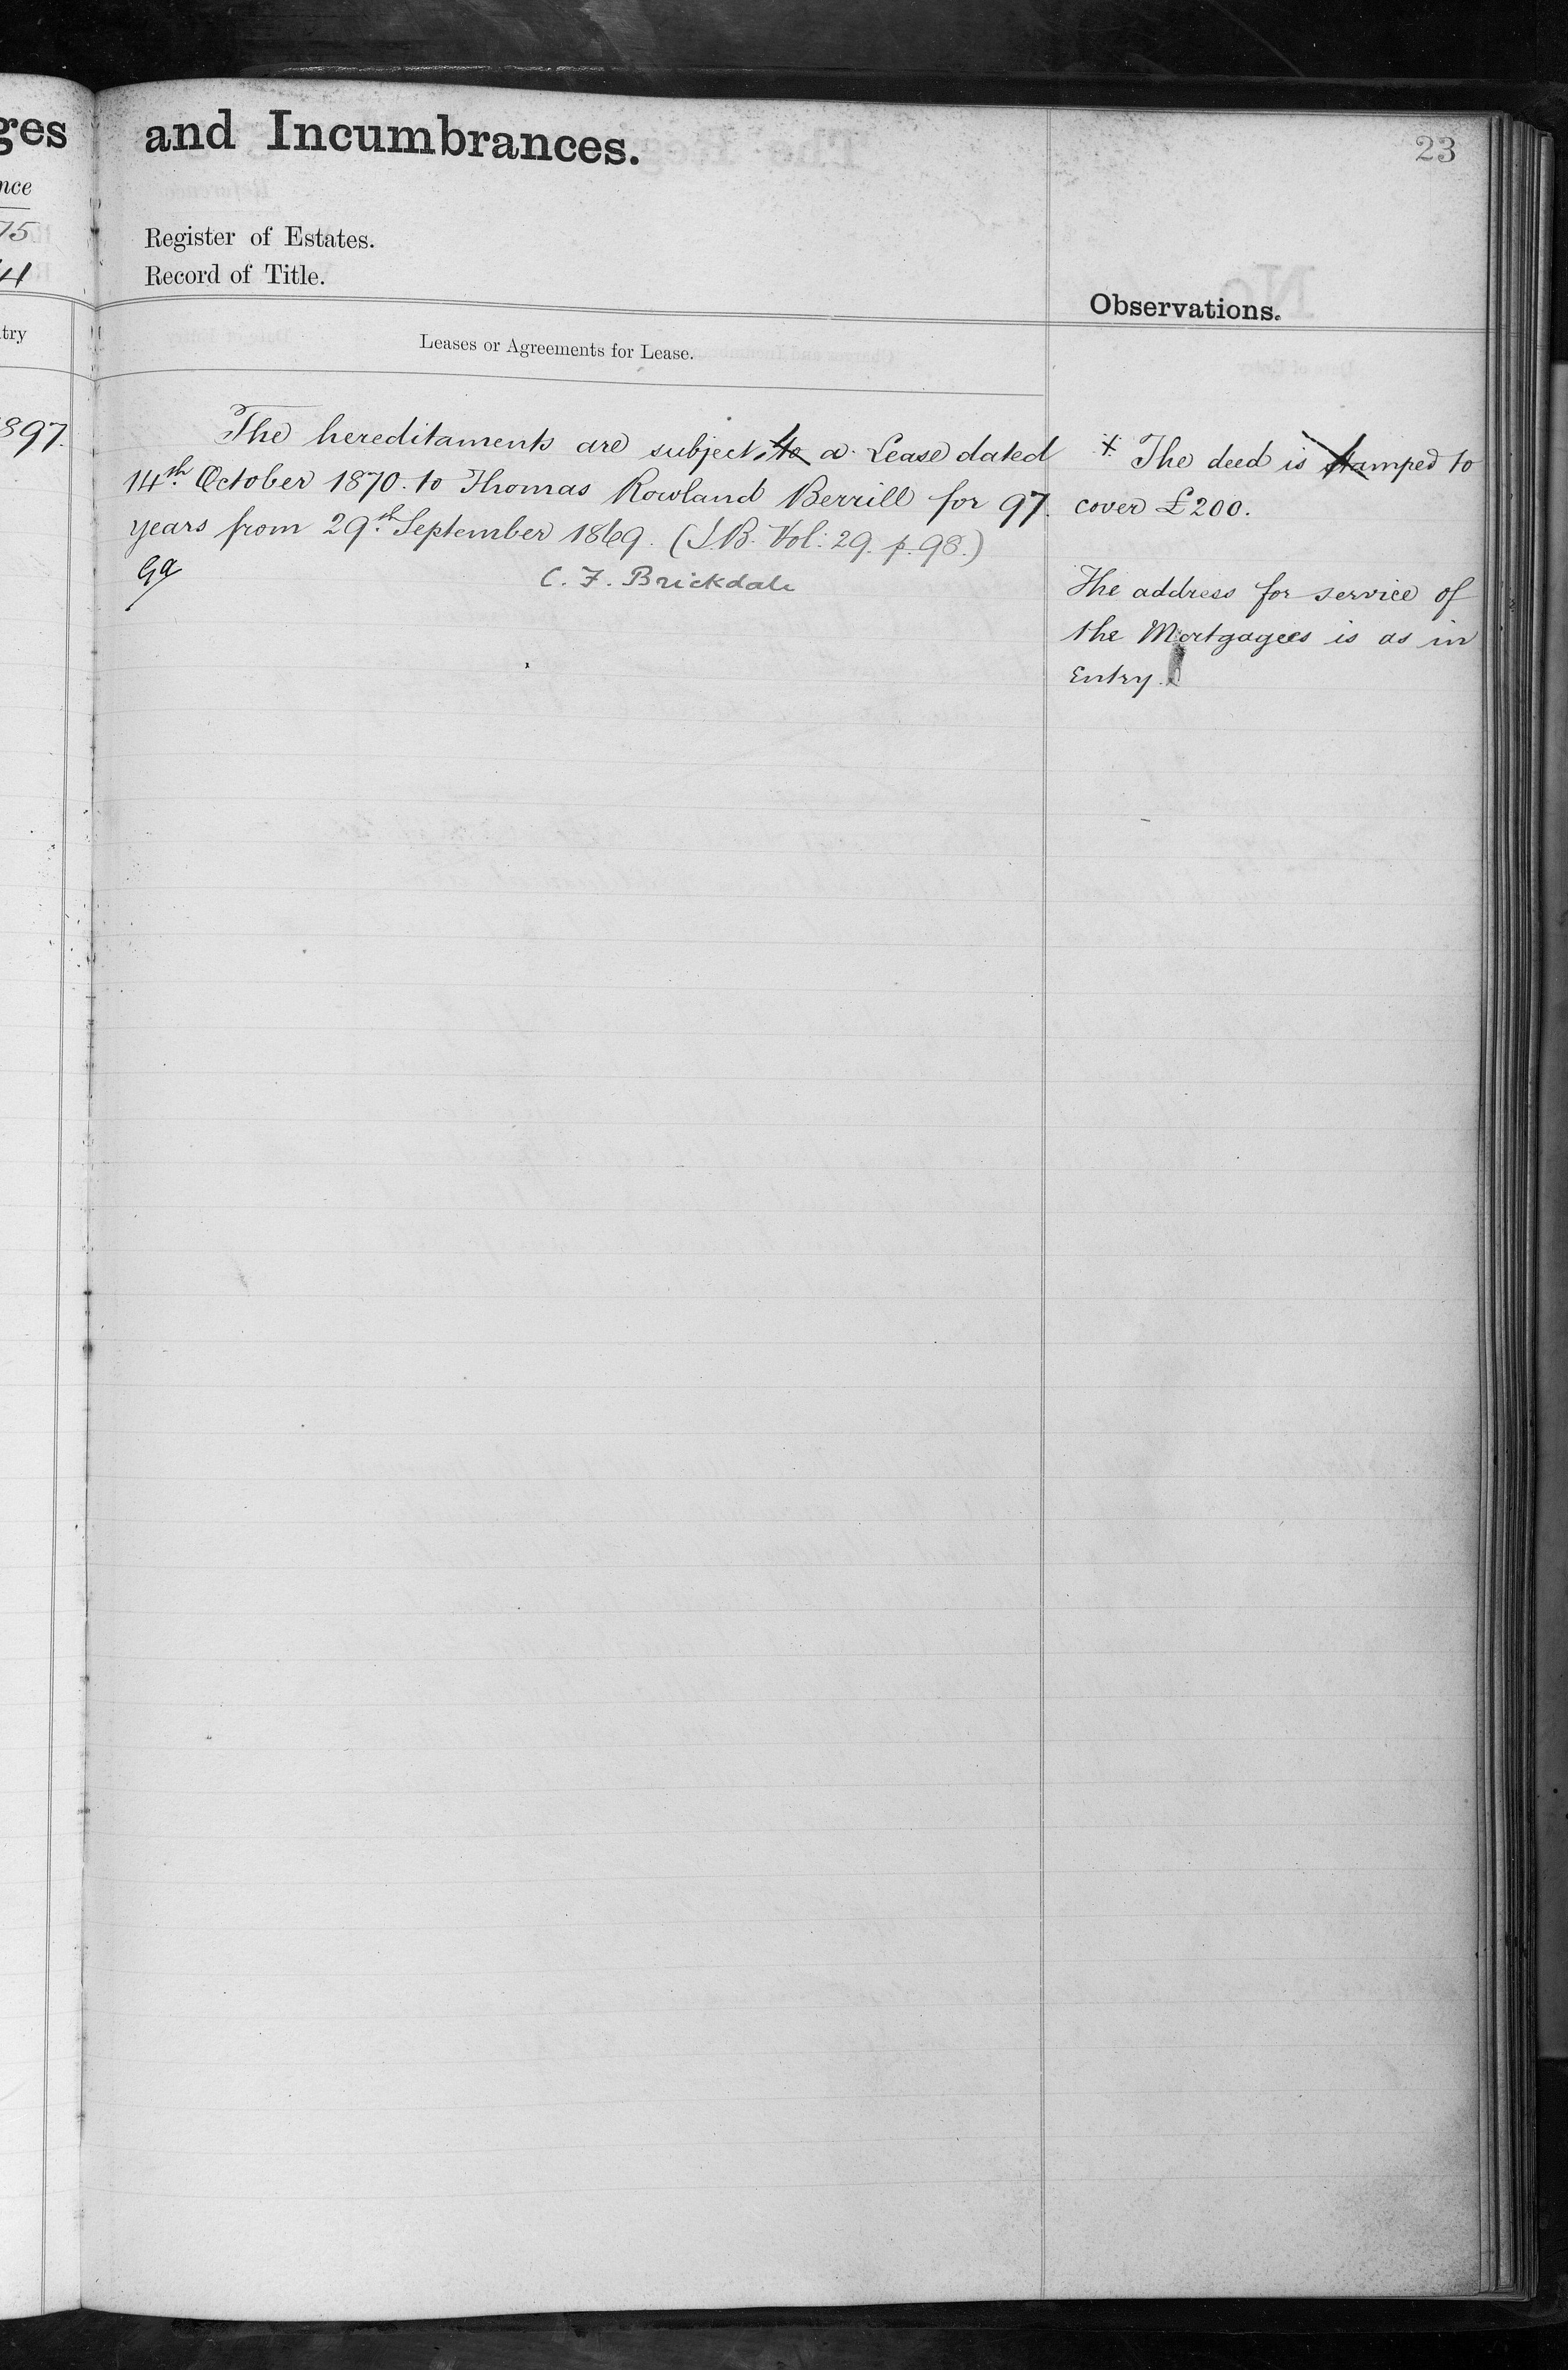 ges
nce
75
4
try
897.
and Incumbrances.
23
Register of Estates.
Record of Title.
Observations.
Leases or Agreements for Lease.
The hereditaments are subject to a Lease dated
14th October 1870 to Thomas Rowland Berrill for 97
years from 29th September 1869. (I.B. Vol: 29. p. 98.)
C. F. Brickdale
The deed is stamped to
cover £200.
The address for service of
the Mortgagees is as in
Entry